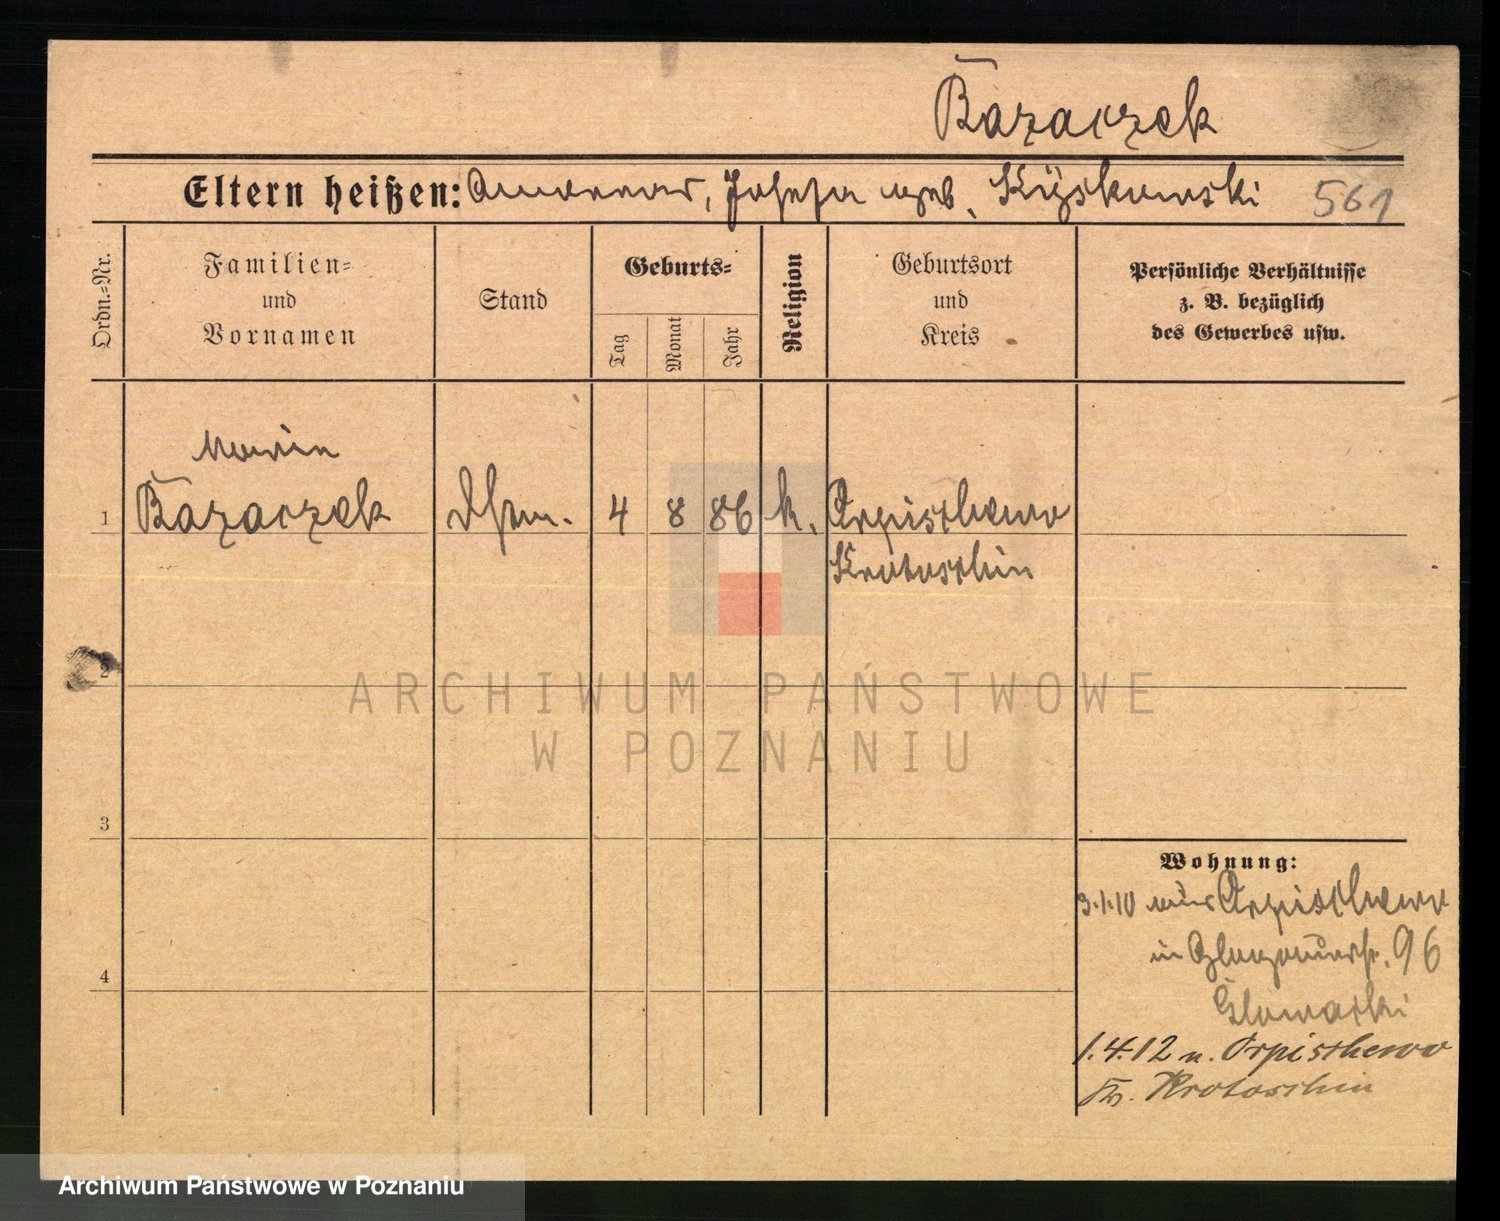 Bazarczek
Eltern heißen: Josefa geb. Kyskowski 561
Ordn.=Nr.
Familien=
und
Vornamen
Stand
Geburts=
Tag
Monat
Jahr
Religion
Geburtsort
und
Kreis
Persönliche Verhältnisse
z. B. bezüglich
des Gewerbes usw.
Maria
1 Bazarczek 4 8 86 k. Orpischewo
Krotoschin
2
ARCHIWUM PAŃSTWOWE
W POZNANIU
3
Wohnung:
3.1.10 aus Orpischewo
in Glogauerstr. 96
4
1.4.12 n. Orpischewo
Kr. Krotoschin
Archiwum Państwowe w Poznaniu